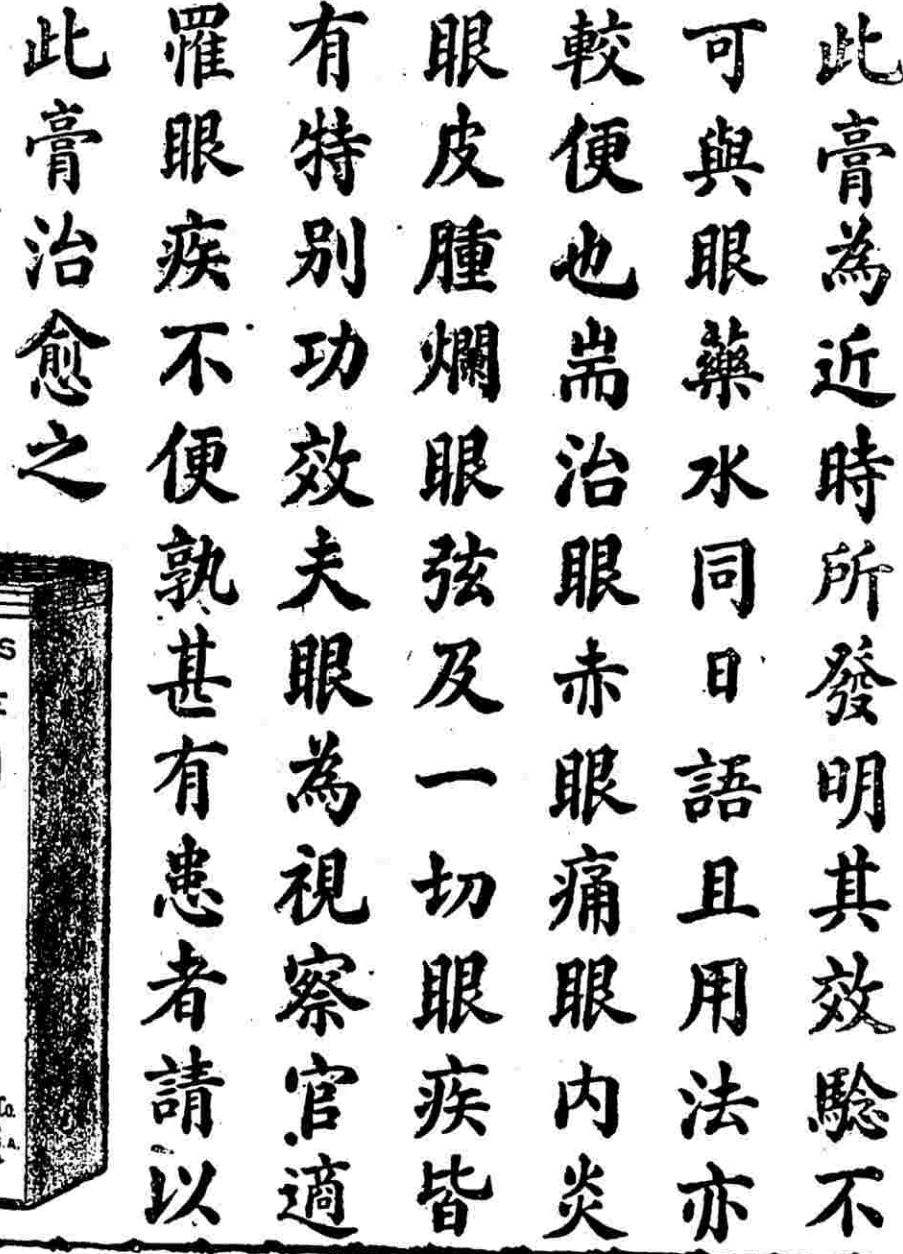 此膏為近時所發明其效騐不
可與眼藥水同日語且用法亦
較便也耑治眼赤眼痛眼內炎
眼皮腫爛眼弦及一切眼疾皆
有特別功效夫眼為視察官適
罹眼疾不便孰甚有患者請以
此膏治愈之
S
E
Co.
S.A.